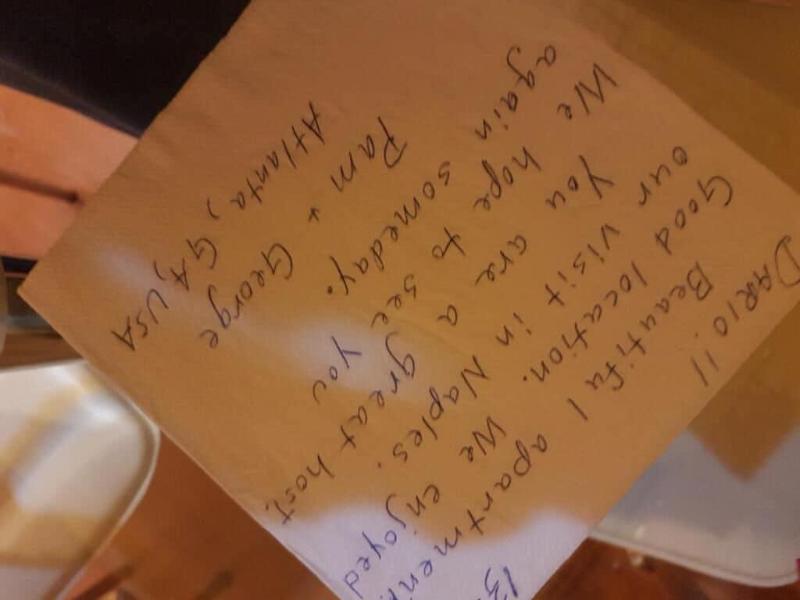 DARIO!!
Beautiful apartment.
Good location. We enjoyed
our visit in Naples.
You are a great host.
We hope to see you
again someday.
Pam + George
Atlanta, GA, USA